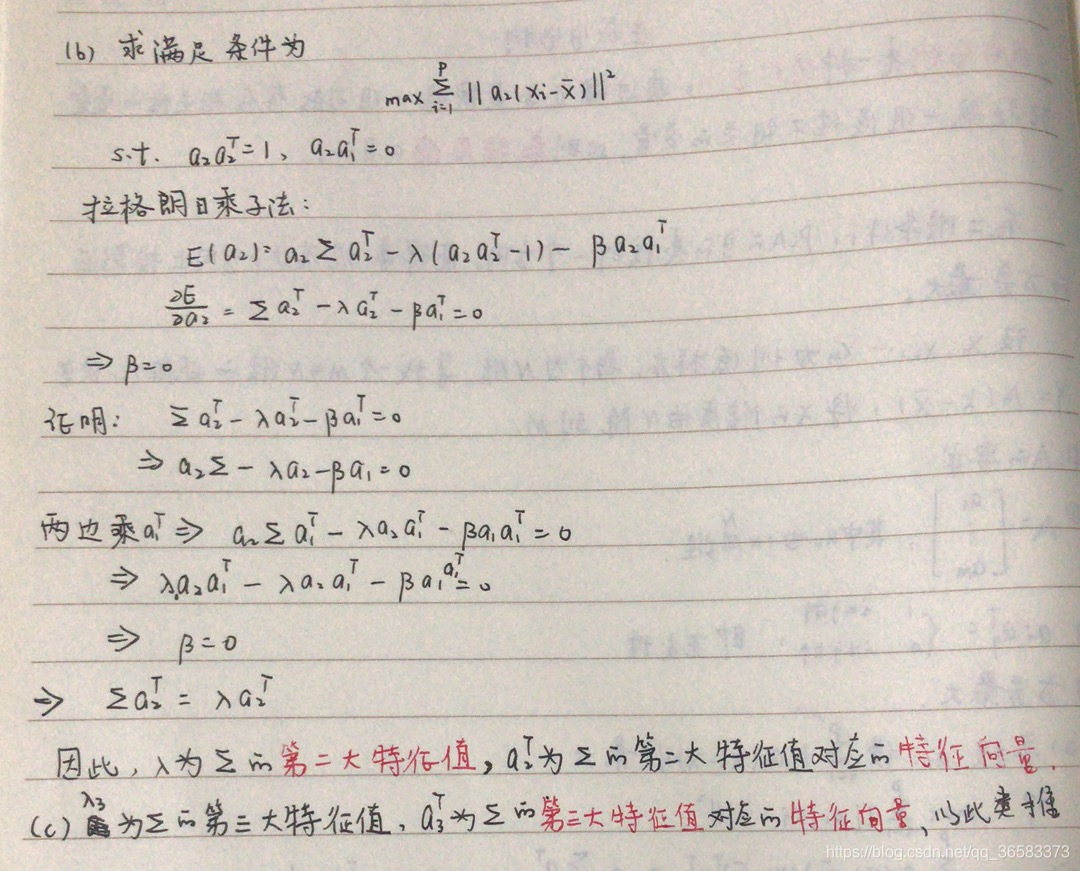 (b) 求满足条件为
max Σ_{i=1}^{P} ||a₂(xᵢ-x̄)||²
s.t. a₂a₂ᵀ=1、a₂a₁ᵀ=0
拉格朗日乘子法:
E(a₂)=a₂Σa₂ᵀ-λ(a₂a₂ᵀ-1)-βa₂a₁ᵀ
∂E/∂a₂=Σa₂ᵀ-λa₂ᵀ-βa₁ᵀ=0
⇒β=0
证明: Σa₂ᵀ-λa₂ᵀ-βa₁ᵀ=0
⇒a₂Σ-λa₂-βa₁=0
两边乘a₁ᵀ⇒ a₂Σa₁ᵀ-λa₂a₁ᵀ-βa₁a₁ᵀ=0
⇒ λ₁a₂a₁ᵀ-λa₂a₁ᵀ-βa₁a₁ᵀ=0
⇒ β=0
⇒ Σa₂ᵀ=λa₂ᵀ
因此,λ为Σ的第二大特征值,a₂ᵀ为Σ的第二大特征值对应的特征向量.
(c) λ₃为Σ的第三大特征值、a₃ᵀ为Σ的第三大特征值对应的特征向量,以此类推
https://blog.csdn.net/qq_36583373